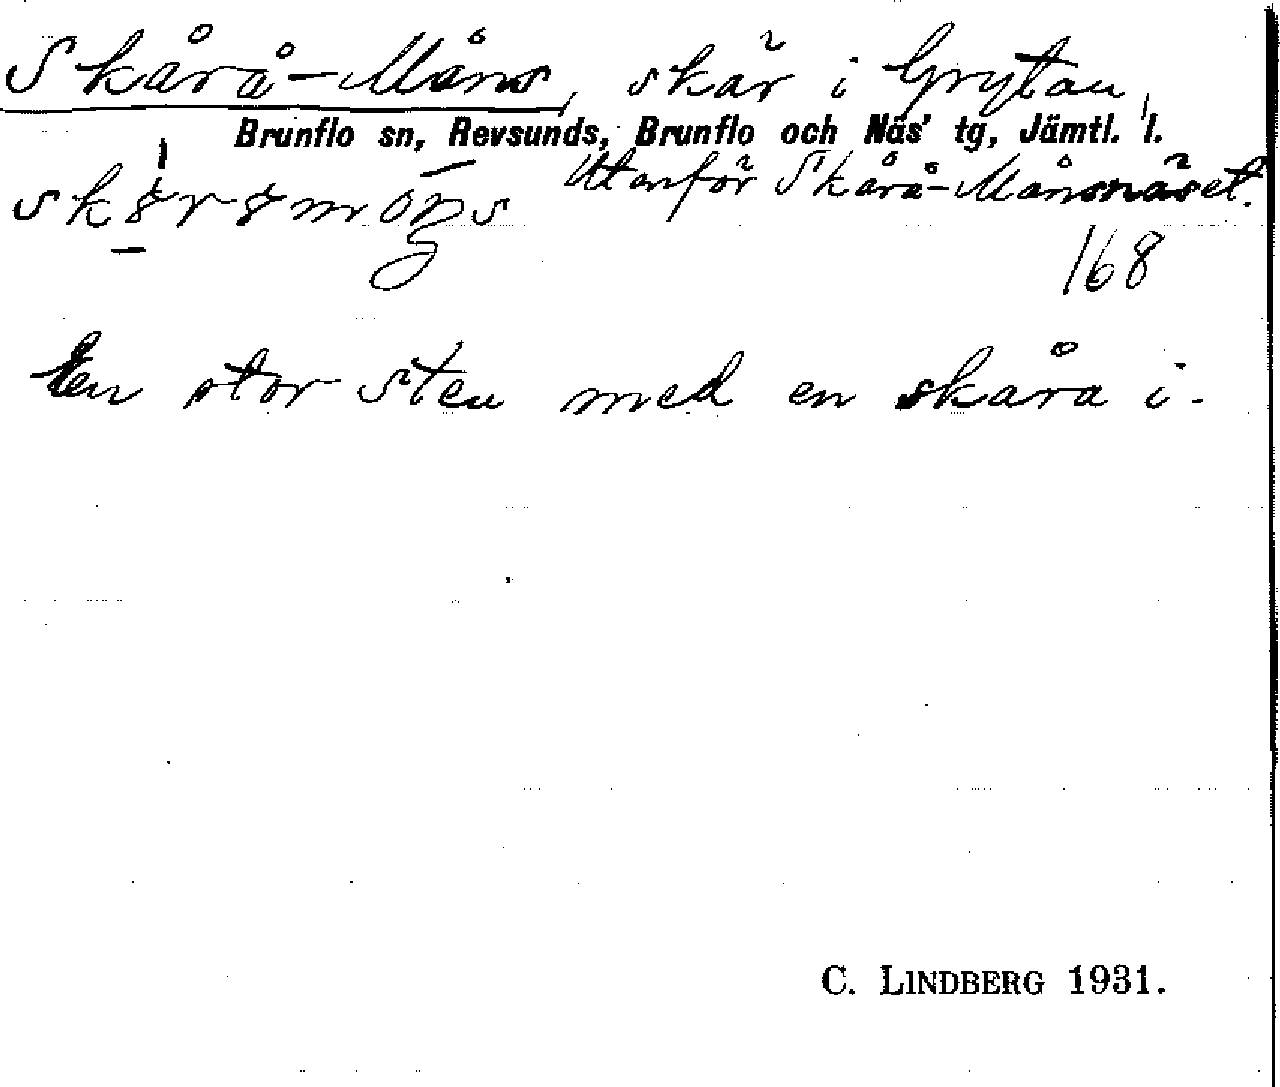 Skårå-Måns, skär i Grytan,
Brunflo sn, Revsunds, Brunflo och Näs' tg, Jämtl. l.
Utanför Skårå-Månsnäset.
168
En stor sten med en skåra i.
C. LINDBERG 1931.